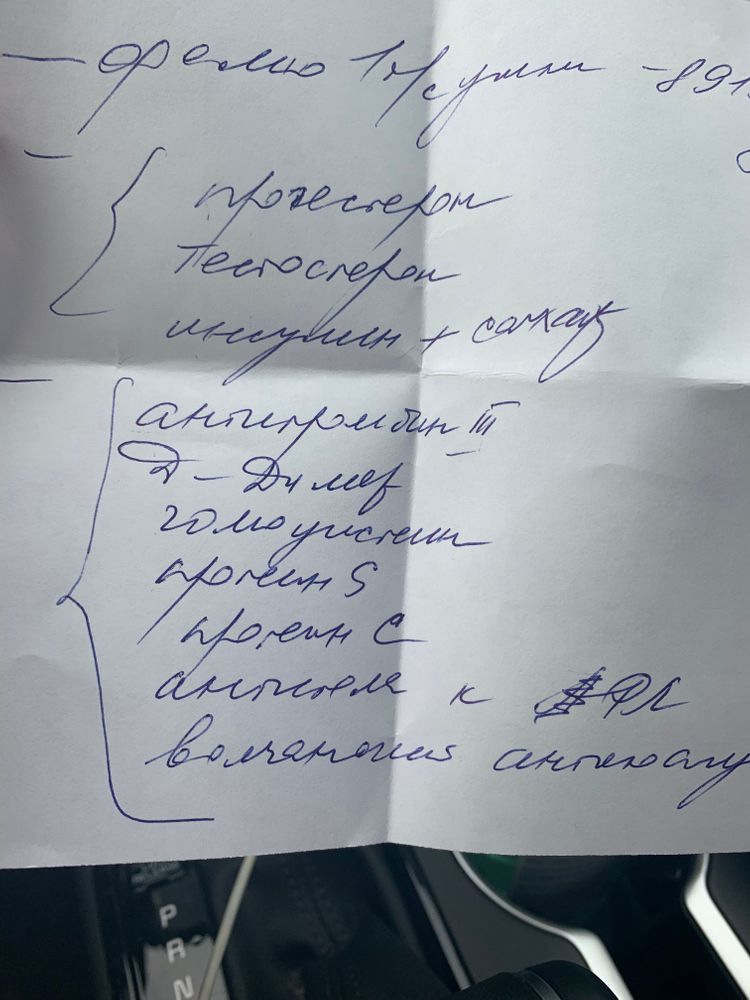 — фемио 1т/с утли -891
—
прогестерон
Тестостерон
инсулин + сахар
—
антитромбин III
Д-Димер
гомоцистеин
протеин S
протеин C
антитела к ФЛ
волчаночный антикоагу
P
R
N